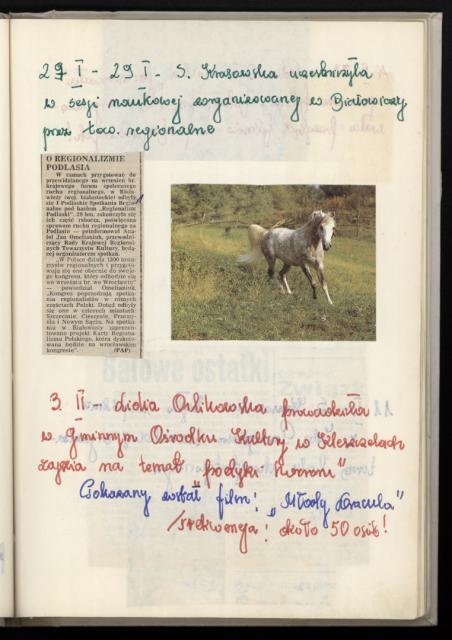 27 I - 29 I - S. Krasowska uczestniczyła
w sesji naukowej zorganizowanej w Białowieży
przez tow. regionalne
O REGIONALIZMIE
PODLASIA
W ramach przygotowań do
przewidzianego na wrzesień br.
krajowego forum społecznego
ruchu regionalnego, w Biało-
wieży (woj. białostockie) odbyły
się I Podlaskie Spotkania Regio-
nalne pod hasłem „Regionalizm
Podlaski". 29 bm. zakończyła się
ich część robocza, poświęcona
sprawom ruchu regionalnego na
Podlasiu — poinformował Ana-
tol Jan Omelaniuk, przewodni-
czący Rady Krajowej Regional-
nych Towarzystw Kultury, będą-
cej organizatorem spotkań.
„W Polsce działa 1300 towa-
rzystw regionalnych i przygoto-
wują się one obecnie do swoje-
go kongresu, który odbędzie się
we wrześniu br. we Wrocławiu"
— powiedział Omelaniuk.
„Kongres poprzedzają spotka-
nia regionalistów w różnych
częściach Polski. Dotąd odbyły
się one w czterech miastach:
Szczecinie, Cieszynie,
i Nowym Sączu. Na spotka-
niu w Białowieży zaprezen-
towano projekt Karty Regiona-
lizmu Polskiego, która dyskuto-
wana będzie na wrocławskim
kongresie". (PAP)
3 II - Lidia Orlikowska prowadziła
w Gminnym Ośrodku Kultury w Kleszczelach
zajęcia na temat „poetyki horroru"
Pokazany został film: „Młody Dracula"
frekwencja: około 50 osób!